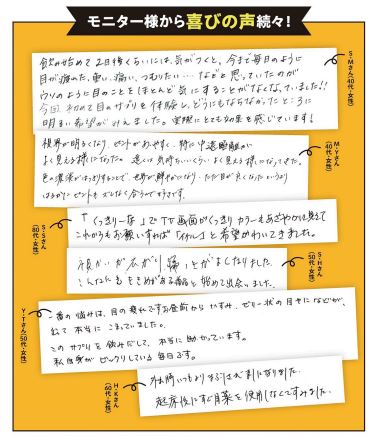 モニター様から喜びの声続々！
飲み始めて2日後くらいには、気がつくと、今まで毎日のように
目が疲れた、重い、痛い、つむりたい…などと思っていたのが
ウソのように目のことをほとんど気にすることがなくなっていました!!
今回、初めて目のサプリを体験し、どうにもならなかったところに
明るい希望がみえました。実際にとても効果を感じています!
S・Mさん(40代・女性)
視界が明るくなり、ピントがあいやすく、特に中遠距離が
よく見える様になった。遠くは気持ちいいくらいよく見える様になってきた。
色の濃淡がはっきりすることで、世界が鮮やかになり、ただ目が良くなったというより
はるかにピントもズレなく合うのですごいです。
M・Tさん(40代・女性)
「くっきり一等」でTV画面がくっきり カラーもあざやかに見えて
これからもお願いすれば「イケル」と希望がわいてきました。
S・Sさん(60代・女性)
視かいが広がり、痛いとかましたりました。
こんなにききめがある商品と始めて出会いました。
S・Hさん(50代・女性)
一番の悩みは、目の疲れですお昼前からかすみ、ゼリー状の目やになどが、
出て本当にこまっていました。
このサプリを飲みだして、本当に助かっています。
私自身がビックリしている毎日です。
Y・Tさん(50代・女性)
外出時いつもより
起床後にすぐ目薬を使用しなくてすみました。
H・Kさん(60代・女性)